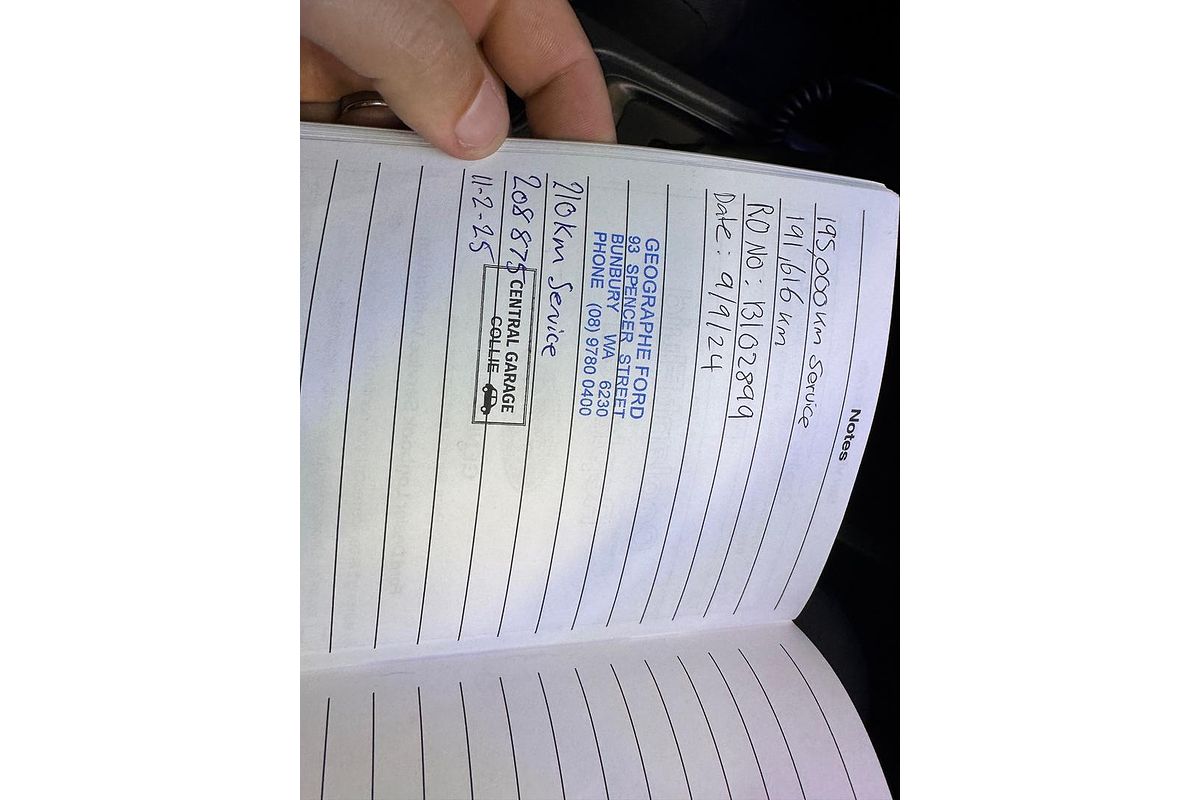 Notes
195,000 km Service
191,616 km
RO NO: 13102899
Date: 9/9/24
GEOGRAPHE FORD
93 SPENCER STREET
BUNBURY WA 6230
PHONE (08) 9780 0400
210km Service
208 875
11-2-25
CENTRAL GARAGE
COLLIE